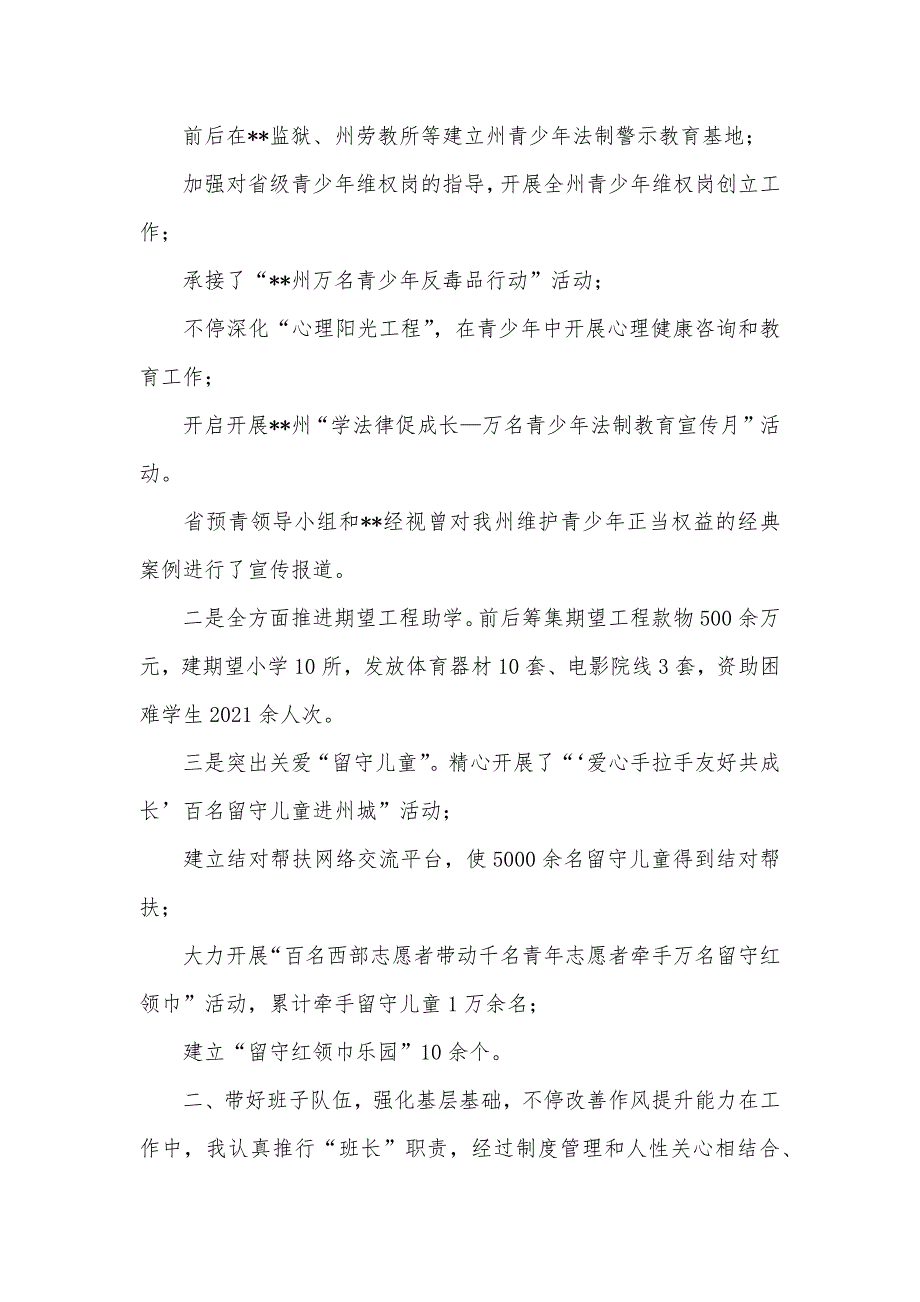 前后在**监狱、州劳教所等建立州青少年法制警示教育基地；
加强对省级青少年维权岗的指导，开展全州青少年维权岗创立工
作；
承接了“**州万名青少年反毒品行动”活动；
不停深化“心理阳光工程”，在青少年中开展心理健康咨询和教
育工作；
开启开展**州“学法律促成长—万名青少年法制教育宣传月”活
动。
省预青领导小组和**经视曾对我州维护青少年正当权益的经典
案例进行了宣传报道。
二是全方面推进期望工程助学。前后筹集期望工程款物 500 余万
元，建期望小学 10 所，发放体育器材 10 套、电影院线 3 套，资助困
难学生 2021 余人次。
三是突出关爱“留守儿童”。精心开展了“‘爱心手拉手友好共成
长’百名留守儿童进州城”活动；
建立结对帮扶网络交流平台，使 5000 余名留守儿童得到结对帮
扶；
大力开展“百名西部志愿者带动千名青年志愿者牵手万名留守红
领巾”活动，累计牵手留守儿童 1 万余名；
建立“留守红领巾乐园”10 余个。
二、带好班子队伍，强化基层基础，不停改善作风提升能力在工
作中，我认真推行“班长”职责，经过制度管理和人性关心相结合、